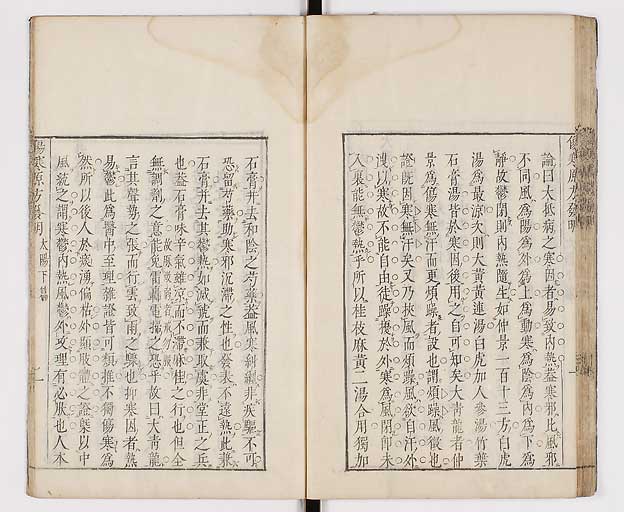 論曰大抵病之寒因者易致内熱蓋寒邪比風邪
不同風為陽為外為上為動寒為陰為内為下為
靜故鬱閉則内熱隨生如仲景一百十三方白虎
湯為最涼次則大黃黃連湯白虎加人參湯竹葉
石膏湯皆於寒因後用之自可知矣大青龍者仲
景為傷寒無汗而更煩躁者設也謂煩躁風徵也
證既因寒無汗矣又乃挾風而煩躁風欲自汗外
洩以寒故不能自由徒躁擾於外寒為風閉抑未
入裏能無鬱熱乎所以桂枝麻黃二湯合用獨加
石膏并去和陰之芍藥蓋風寒糾纏非疾驅不可
恐留芍藥助寒邪沉滯之性也發表不遠熱此兼
石膏并去其鬱熱如滅虢而兼取虞非堂正之兵
也蓋石膏味辛氣雖涼而不滯麻桂之行也但全
無調劑之意能免雷轟電掣之恐乎故曰大青龍
言其聲勢之張而行雲致雨之驟也抑寒因者熱
易鬱此為醫中至理雜證皆可類推不獨傷寒為
然所以後人於痰湧偏枯外顯肢體之證槩以中
風統之謂寒鬱内熱風鬱外支理有必然也人本
傷寒原方發明 太陽下
傷寒原方發明